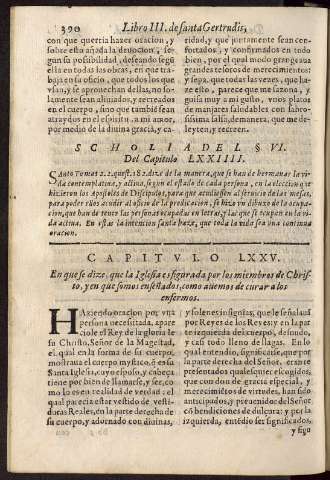 390 Libro III. de santa Gertrudis,
con que querria hazer oracion, y
sobre esto añada la deuocion, se-
gũ su possibilidad, deseando segũ
ella en todas las obras, en que tra-
baja en su oficio, que todos los que
vsan, y se aprouechan dellas, no so-
lamente sean aliuiados, y recreados
en el cuerpo, sino que tambiẽ sean
atraydos en el espiritu. a mi amor,
por medio de la diuina gracia, y ca-
ridad, y que juntamente sean con-
fortados, y confirmados en todo
bien, por el qual modo grangeara
grandes tesoros de merecimientos
y sepa, que todas las vezes que hi-
zere esto, parece que me sazona, y
guisa muy a mi gusto, vnos platos
de manjares saludables con sabro-
sissima salsa, demanera, que me de-
leyten, y recreen.
SCHOLIA DEL § VI.
Del Capitulo LXXIIII.
SAnto Tomas 2.2. quęst. 182. dize de la manera, que se han de hermanar la vi-
da contemplatiua, y actiua, segun el estado de cada persona, en la eleccion que
hizieron los Apostoles de Discipulos, para que acudiessen al seruicio de las mesas,
para poder ellos acudir al oficio de la predicacion, se hizo vn dibuxo de la ocupa-
cion, que han de tener las personas ocupadas en letras, y las que se ocupan en la vi-
da actiua. En estas la intencion santa haze, que toda la vida sea vna continua
oracion.
CAPITVLO LXXV.
En que se dize, que la Iglesia es figurada por los miembros de Chris-
to, y en que somos enseñados, como auemos de curar a los
enfermos.
HAziendo oracion por vna
persona necessitada, apare-
ciole el Rey de la gloria Ie-
su Christo, Señor de la Magestad,
el qual en la forma de su cuerpo,
mostraua el cuerpo mystico, õ en su
Santa Iglesia, cuyo esposo, y cabeça
tiene por bien de llamarse, y ser, co-
mo lo es en realidad de verdad: el
qual parecia estar vestido de vesti-
duras Reales, en la parte derecha de
su cuerpo, y adornado con diuinas,
y solenes insignias, que le señalauã
por Rey de los Reyes: y en la par-
te izquierda descuerpo, desnudo,
y casi todo lleno de llagas. En lo
qual entendio, significarse, que por
la parte derecha del Señor, erã re-
presentados qualesquier escogidos,
que con don de gracia especial, y
merecimiẽtos de virtudes, han sido
anticipados, y preuenidos del Señor
cõ bendiciones de dulçura: y por la
izquierda, entẽdio ser significados,
y figu-